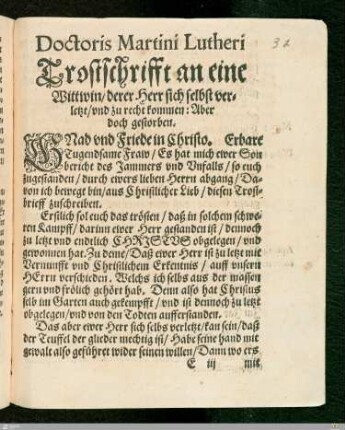 Doctoris Martini Lutheri
Trostschrifft an eine
Wittwin/derer Herr sich selbst ver-
letzt/vnd zu recht kommen: Aber
doch gestorben.
GNad vnd Friede in Christo. Erbare
Tugendsame Fraw/Es hat mich ewer Son
bericht des Jammers vnd Vnfalls/so euch
zugestanden/durch ewers lieben Herrn abgang/Da-
von ich bewegt bin/aus Christlicher Lieb/diesen Trost-
brieff zuschreiben.
Erstlich sol euch das trösten/daß in solchem schwe-
ren Kampff/darinn ewer Herr gestanden ist/dennoch
zu letzt vnd endtlich CHRISTVS obgelegen/vnd
gewonnen hat. Zu deme/Daß ewer Herr ist zu letzt mit
Vernunfft vnd Christlichem Erkentnis/auff vnsern
HErrn verschieden. Welchs ich selbs aus der massen
gern vnd frölich gehört hab. Denn also hat Christus
selb im Garten auch gekempfft/vnd ist dennoch zu letzt
obgelegen/vnd von den Todten aufferstanden.
Das aber ewer Herr sich selbs verletzt/kan sein/daß
der Teuffel der glieder mechtig ist/Habe seine hand mit
gewalt also geführet wider seinen willen/Dann wo ers
E iij mit